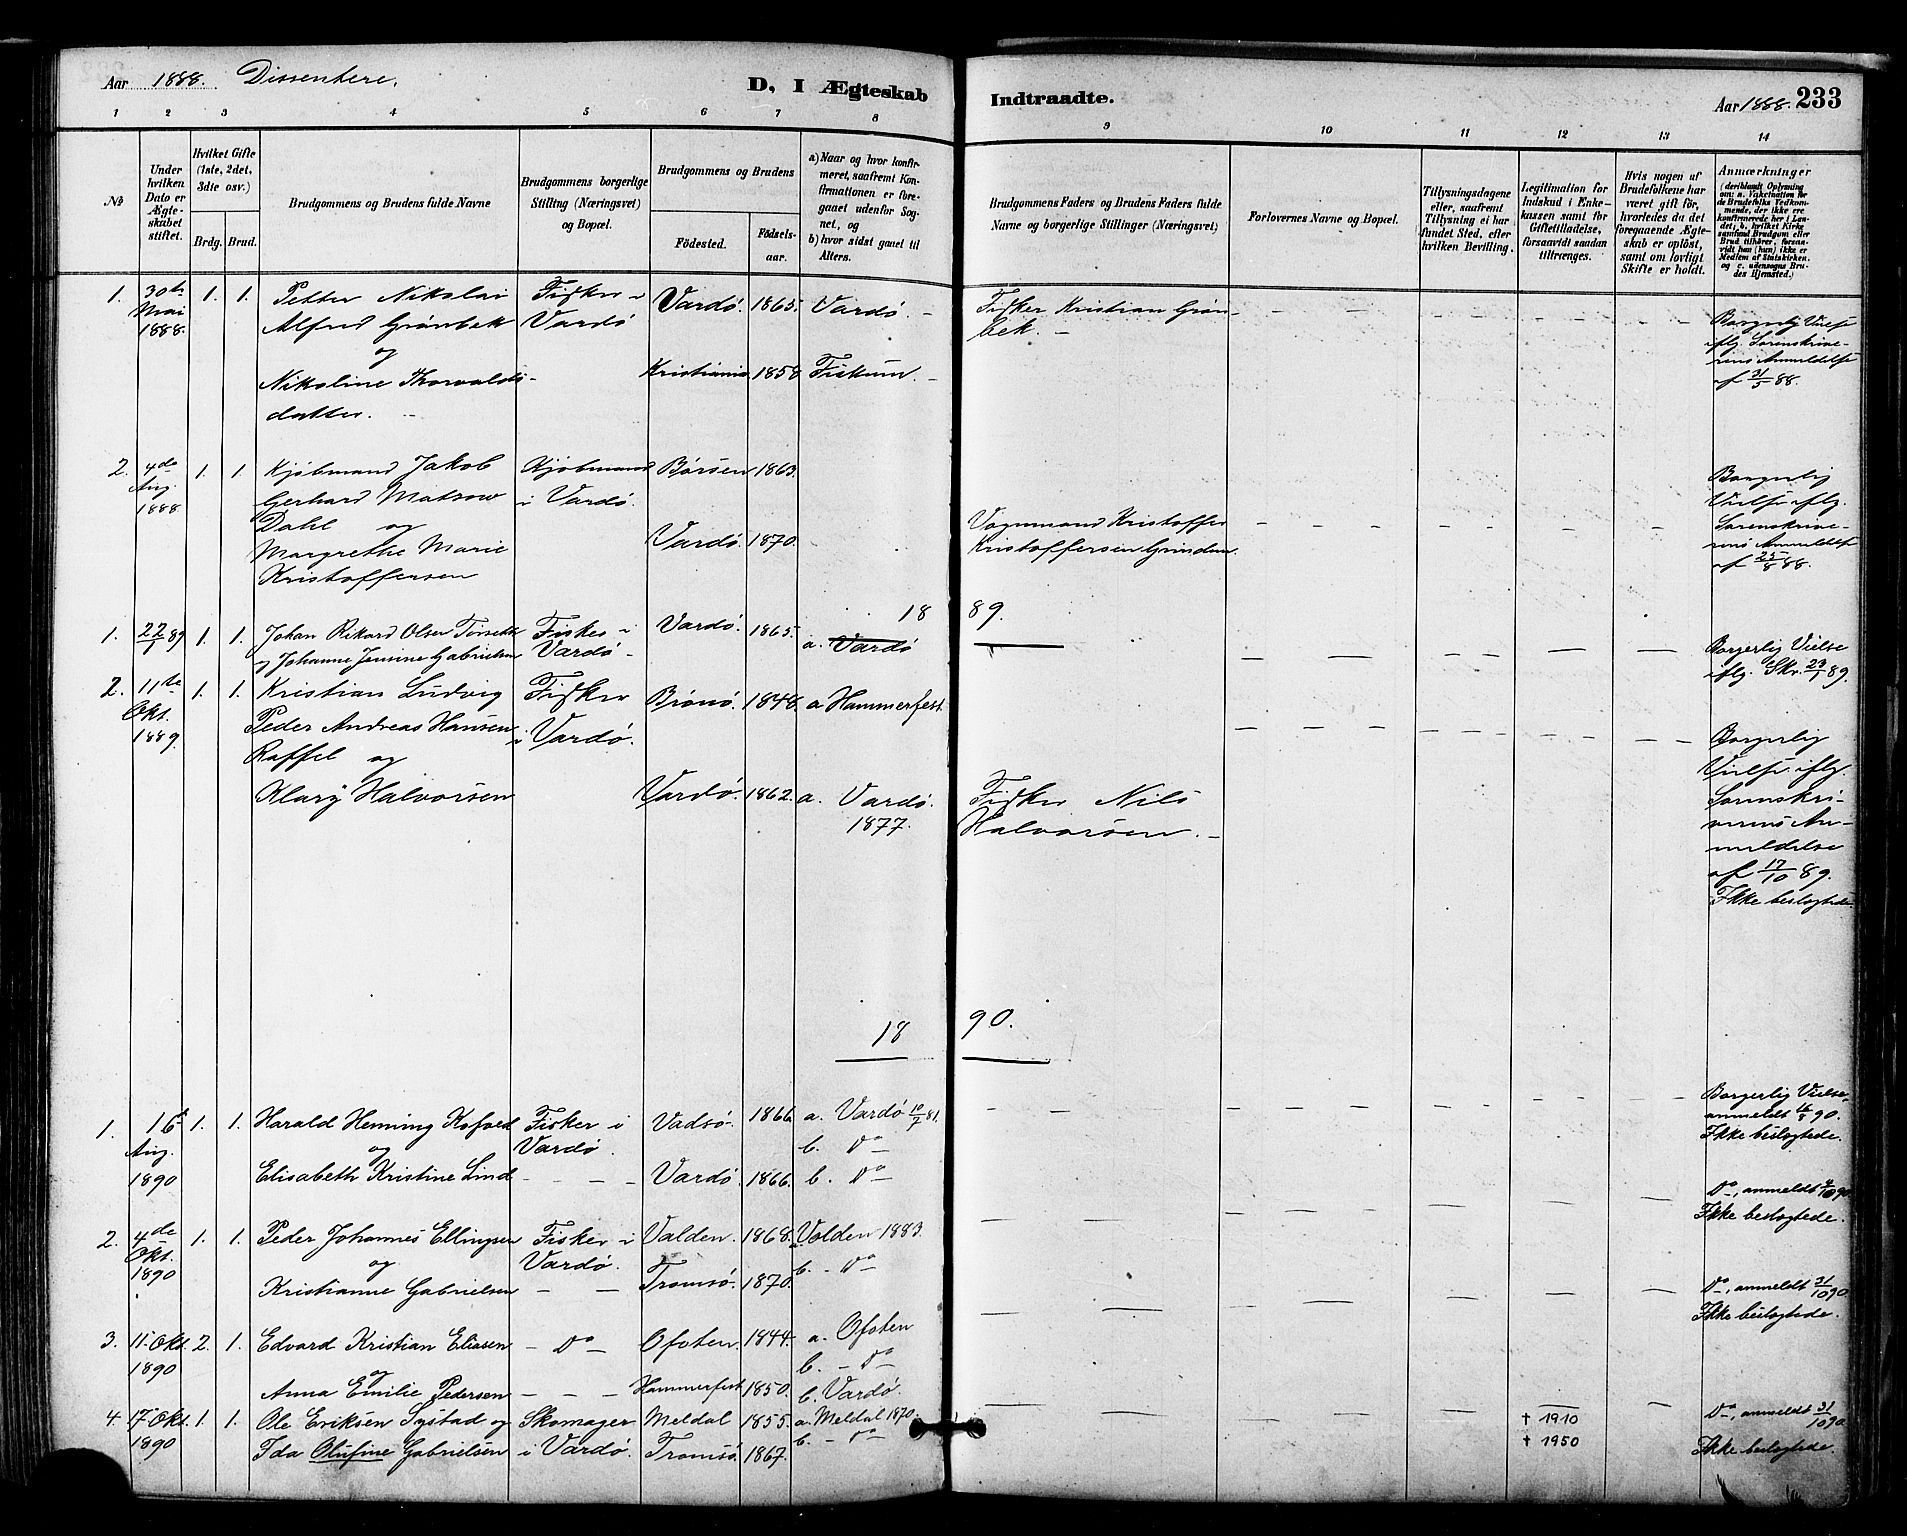 Aar 1888. Dissentere.
D, I Ægteskab
Indtraadte.
Aar 1888. 233
1 2 3 4 5 6 7 8 9 10 11 12 13 14
No
Under hvilken Dato er Ægteskabet stiftet.
Hvilket Gifte (1ste, 2det, 3die osv.)
Brdg. Brud.
Brudgommens og Brudens fulde Navne
Brudgommens borgerlige Stilling (Næringsvei) og Bopæl.
Brudgommens og Brudens
Fødested.
Fødsels-aar.
a) Naar og hvor konfirmeret, saafremt Konfirmationen er foregaaet udenfor Sognet, og
b) hvor sidst gaaet til Alters.
Brudgommens Faders og Brudens Faders fulde Navne og borgerlige Stillinger (Næringsvei)
Forlovernes Navne og Bopæl.
Tillysningsdagene eller, saafremt Tillysning ei har fundet Sted, efter hvilken Bevilling.
Legitimation for Indskud i Enkekassen samt for Giftetilladelse, forsaavidt saadan tiltrænges.
Hvis nogen af Brudefolkene har været gift før, hvorledes da det foregaaende Ægteskab er opløst, samt om lovligt Skifte er holdt.
Anmærkninger
(deriblandt Oplysning om: a. Vakcination for de Brudefolks Vedkommende, der ikke ere konfirmerede her i Landet; b. hvilket Kirkesamfund Brudgom eller Brud tilhører, forsaavidt han (hun) ikke er Medlem af Statskirken, og c. udensogns Brudes Hjemsted.)
1. 30te 1. 1. Petter Nikolai Fisker i Vardø. 1865. Vardø. – Fisker Kristian Grøn-
Mai Alfred Grønbek Vardø bek. – Borgerlig Vielse
1888. og iflg. Sorenskrive-
Nikoline Thorvalds- Kristiania 1858 Fiskum. – rens Anmeldelse
datter. – af 31/5 88.
2. 4de 1. 1. Kjøbmand Jakob Kjøbmand Børsen 1863. Borgerlig
Aug. Gerhard Matsow i Vardø. Vielse iflg.
1888. Dahl og Vognmand Kristoffer Sorenskrive-
Margrethe Marie Vardø. 1870. Kristoffersen Grindem. rens Anmeldelse
Kristoffersen af 25/8 88.
18 89.
1. 22/1 89 1. 1. Johan Rikard Olsen Fisker i Vardø. 1865. a. Vardø Borgerlig Vielse
og Johanne Jensine Gabrielsen Vardø – iflg. Skr. 23/1 89.
2. 11te 1. 1. Kristian Ludvig Fisker Brønø. 1848. a Hammerfest.
Okt. Peder Andreas Hansen i Vardø. Borgerlig
1889. Raffel og Vielse iflg.
Klary Halvorsen Vardø. 1862. a. Vardø. Fisker Nils Sorenskri-
1877. Halvorsen. – verens An-
meldelse
af 17/10 89.
Ikke beslægtede.
18 90.
1. 16 1. 1. Harald Henning Kofoed Fisker i Vadsø. 1866. a. Vardø 10/7 81. Borgerlig Vielse,
Aug. og Vardø. b. Do anmeldt 16/8 90.
1890 Elisabeth Kristine Lind – – – Vardø. 1866. b. Do Ikke beslægtede.
2. 4de 1. 1. Peder Johannes Ellingsen Fisker i Valden. 1868. a Volden 1883. Do, anmeldt 4/10 90.
Okt. og Vardø. b. – Do Ikke beslægtede.
1890 Kristianne Gabrielsen – – Tromsø. 1870.
3. 11. Okt. 2. 1. Edvard Kristian Eliasen – Do – Ofoten. 1844. a. Ofoten Do, anmeldt 31/10 90.
1890 og b. – Do Ikke beslægtede.
Anna Emilie Pedersen – – – Hammerfest 1850. b. Vardø.
4. 17 Okt. 1. 1. Ole Eriksen Systad og Skomager Meldal 1855. a. Meldal 1870. † 1910 Do, anmeldt 31/10 90
1890 Ida Olufine Gabrielsen i Vardø. Tromsø. 1867. b. – Do – † 1950 Ikke beslægtede.